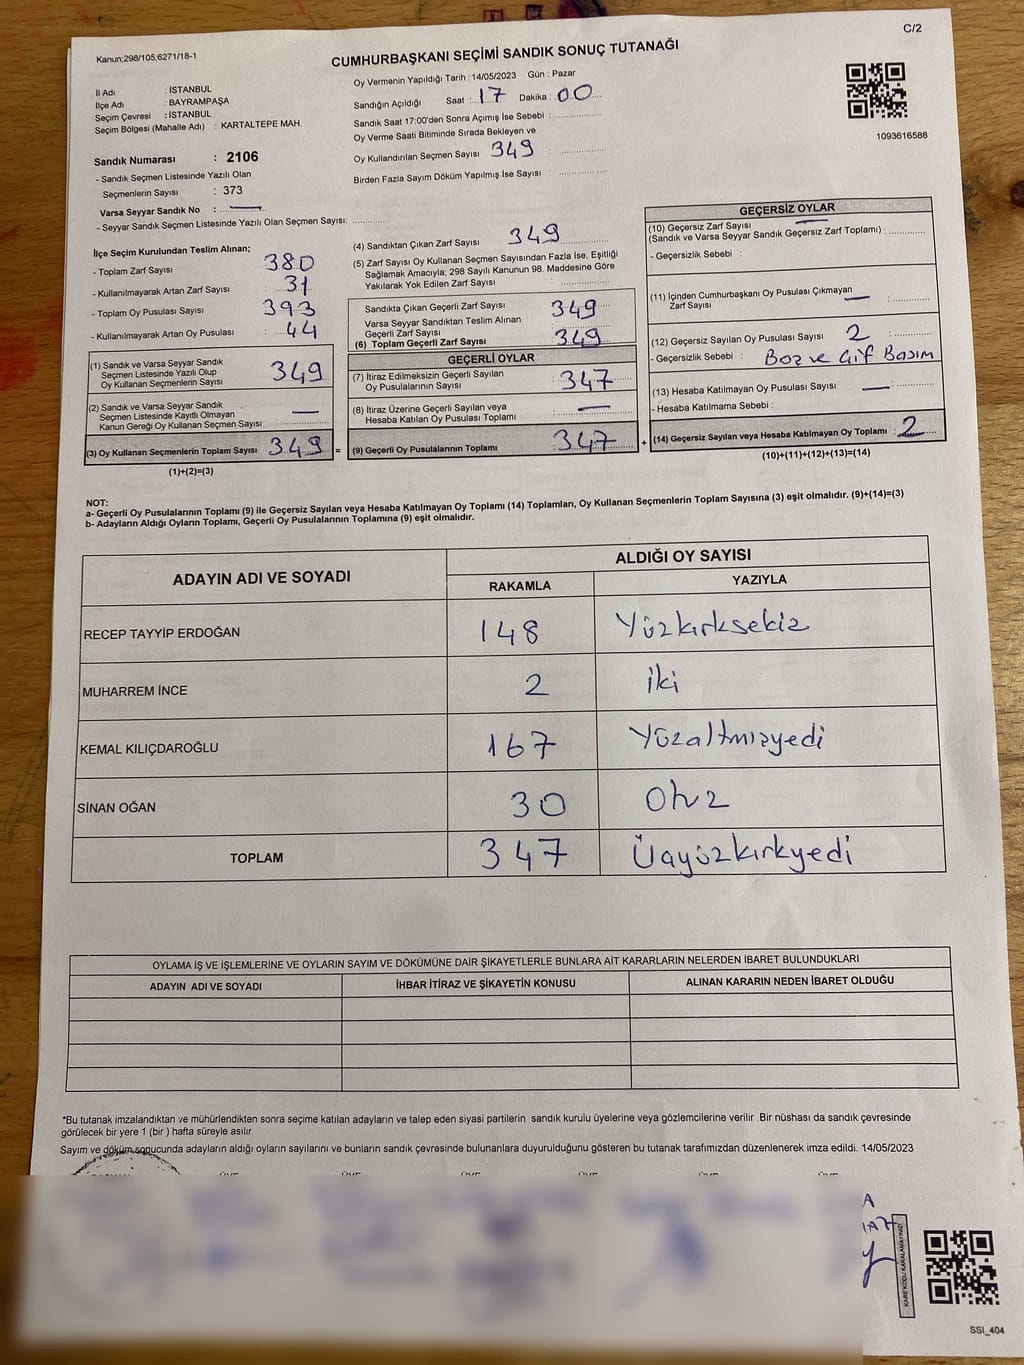 C/2
Kanun:298/105;6271/18-1
CUMHURBAŞKANI SEÇİMİ SANDIK SONUÇ TUTANAĞI
İl Adı : İSTANBUL
İlçe Adı : BAYRAMPAŞA
Seçim Çevresi : İSTANBUL
Seçim Bölgesi (Mahalle Adı) : KARTALTEPE MAH.
Oy Vermenin Yapıldığı Tarih : 14/05/2023 Gün : Pazar
Sandığın Açıldığı Saat : 17 Dakika : 00
Sandık Saat 17:00'den Sonra Açımış İse Sebebi :
Oy Verme Saati Bitiminde Sırada Bekleyen ve
Oy Kullandırılan Seçmen Sayısı 349 :
Birden Fazla Sayım Döküm Yapılmış İse Sayısı :
1093616588
Sandık Numarası : 2106
- Sandık Seçmen Listesinde Yazılı Olan
Seçmenlerin Sayısı : 373
Varsa Seyyar Sandık No : —
- Seyyar Sandık Seçmen Listesinde Yazılı Olan Seçmen Sayısı:
İlçe Seçim Kurulundan Teslim Alınan;
- Toplam Zarf Sayısı : 380
- Kullanılmayarak Artan Zarf Sayısı : 31
- Toplam Oy Pusulası Sayısı : 393
- Kullanılmayarak Artan Oy Pusulası : 44
(1) Sandık ve Varsa Seyyar Sandık
Seçmen Listesinde Yazılı Olup
Oy Kullanan Seçmenlerin Sayısı : 349
(2) Sandık ve Varsa Seyyar Sandık
Seçmen Listesinde Kayıtlı Olmayan
Kanun Gereği Oy Kullanan Seçmen Sayısı : —
(3) Oy Kullanan Seçmenlerin Toplam Sayısı : 349 =
(1)+(2)=(3)
(4) Sandıktan Çıkan Zarf Sayısı 349
(5) Zarf Sayısı Oy Kullanan Seçmen Sayısından Fazla İse, Eşitliği
Sağlamak Amacıyla; 298 Sayılı Kanunun 98. Maddesine Göre
Yakılarak Yok Edilen Zarf Sayısı :
Sandıkta Çıkan Geçerli Zarf Sayısı : 349
Varsa Seyyar Sandıktan Teslim Alınan
Geçerli Zarf Sayısı
(6) Toplam Geçerli Zarf Sayısı : 349
GEÇERLİ OYLAR
(7) İtiraz Edilmeksizin Geçerli Sayılan
Oy Pusulalarının Sayısı : 347
(8) İtiraz Üzerine Geçerli Sayılan veya
Hesaba Katılan Oy Pusulası Toplamı : —
(9) Geçerli Oy Pusulalarının Toplamı : 347 +
GEÇERSİZ OYLAR
(10) Geçersiz Zarf Sayısı —
(Sandık ve Varsa Seyyar Sandık Geçersiz Zarf Toplamı) :
- Geçersizlik Sebebi :
(11) İçinden Cumhurbaşkanı Oy Pusulası Çıkmayan
Zarf Sayısı — :
(12) Geçersiz Sayılan Oy Pusulası Sayısı : 2
- Geçersizlik Sebebi : Boz ve Çif Basım
(13) Hesaba Katılmayan Oy Pusulası Sayısı : —
- Hesaba Katılmama Sebebi :
(14) Geçersiz Sayılan veya Hesaba Katılmayan Oy Toplamı : 2
(10)+(11)+(12)+(13)=(14)
NOT:
a- Geçerli Oy Pusulalarının Toplamı (9) ile Geçersiz Sayılan veya Hesaba Katılmayan Oy Toplamı (14) Toplamları, Oy Kullanan Seçmenlerin Toplam Sayısına (3) eşit olmalıdır. (9)+(14)=(3)
b- Adayların Aldığı Oyların Toplamı, Geçerli Oy Pusulalarının Toplamına (9) eşit olmalıdır.
ADAYIN ADI VE SOYADI ALDIĞI OY SAYISI
RAKAMLA YAZIYLA
RECEP TAYYİP ERDOĞAN 148 Yüzkırksekiz
MUHARREM İNCE 2 iki
KEMAL KILIÇDAROĞLU 167 Yüzaltmışyedi
SİNAN OĞAN 30 Otuz
TOPLAM 347 Üçyüzkırkyedi
OYLAMA İŞ VE İŞLEMLERİNE VE OYLARIN SAYIM VE DÖKÜMÜNE DAİR ŞİKAYETLERLE BUNLARA AİT KARARLARIN NELERDEN İBARET BULUNDUKLARI
ADAYIN ADI VE SOYADI İHBAR İTİRAZ VE ŞİKAYETİN KONUSU ALINAN KARARIN NEDEN İBARET OLDUĞU
*Bu tutanak imzalandıktan ve mühürlendikten sonra seçime katılan adayların ve talep eden siyasi partilerin sandık kurulu üyelerine veya gözlemcilerine verilir. Bir nüshası da sandık çevresinde
görülecek bir yere 1 (bir ) hafta süreyle asılır.
Sayım ve döküm sonucunda adayların aldığı oyların sayılarını ve bunların sandık çevresinde bulunanlara duyurulduğunu gösteren bu tutanak tarafımızdan düzenlenerek imza edildi. 14/05/2023
KARE KODU KARALAMAYINIZ!
SSI_404